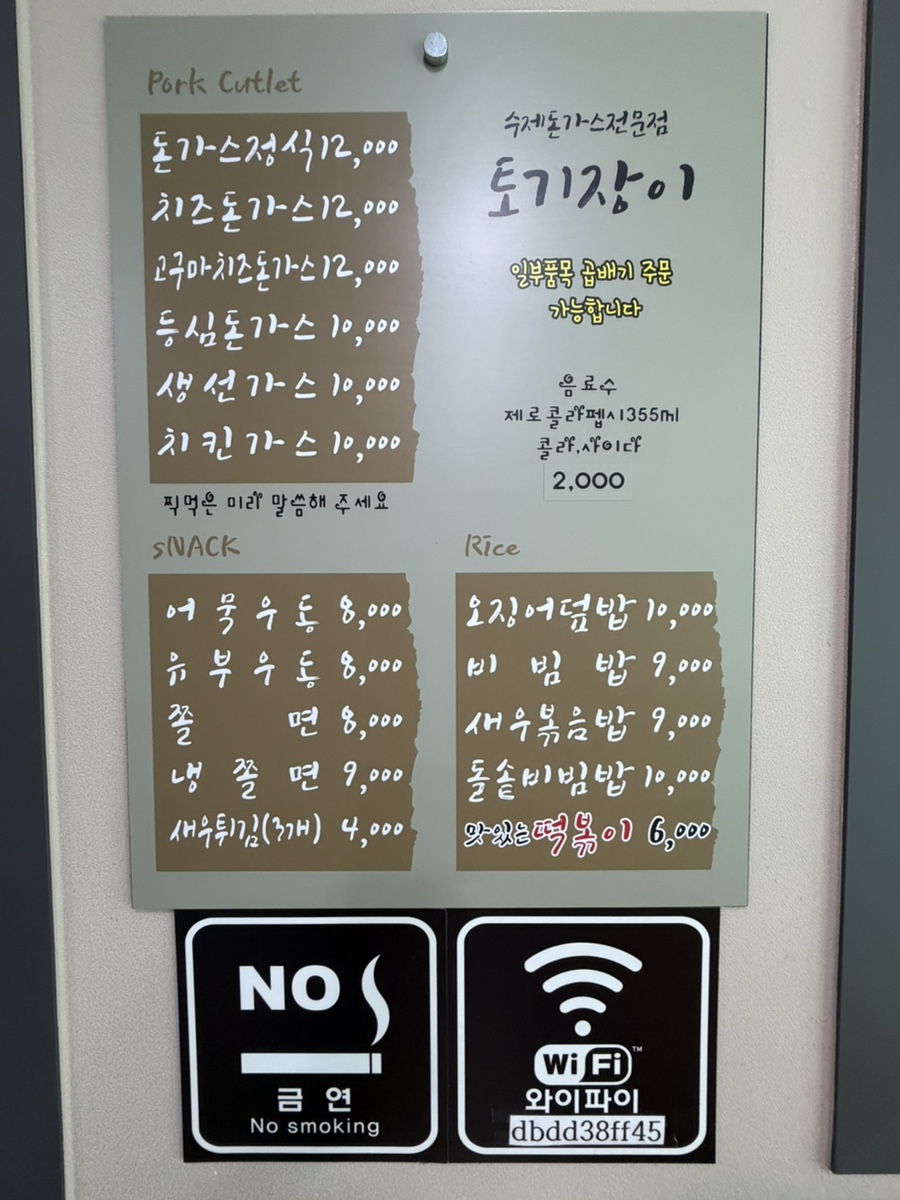 Pork Cutlet
돈가스정식 12,000
치즈돈가스 12,000
고구마치즈돈가스 12,000
등심돈가스 10,000
생선가스 10,000
치킨가스 10,000
찍먹은 미리 말씀해 주세요
수제돈가스전문점
토기장이
일부품목 곱배기 주문
가능합니다
음료수
제로콜라펩시355ml
콜라,사이다
2,000
sNACK
어묵우동 8,000
유부우동 8,000
쫄면 8,000
냉쫄면 9,000
새우튀김(3개) 4,000
Rice
오징어덮밥 10,000
비빔밥 9,000
새우볶음밥 9,000
돌솥비빔밥 10,000
맛있는떡볶이 6,000
NO
금연
No smoking
WiFi™
와이파이
dbdd38ff45